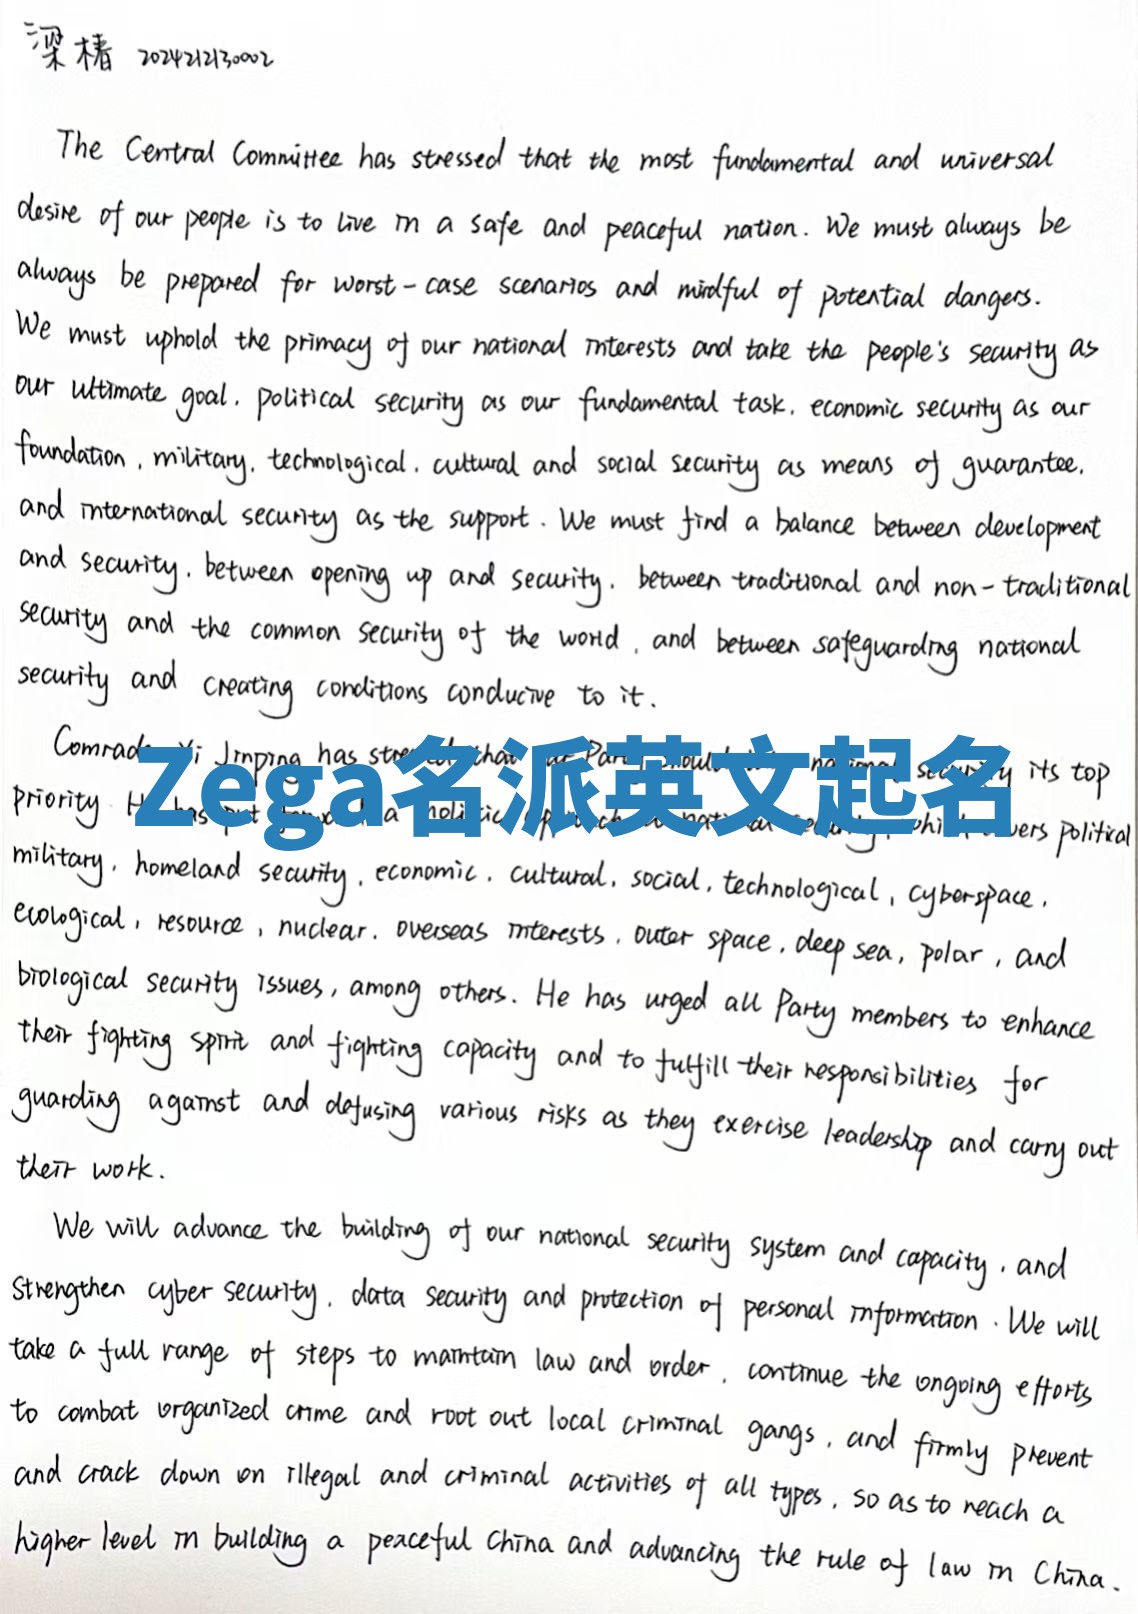 梁椿 2024212130002
The Central Committee has stressed that the most fundamental and universal
desire of our people is to live in a safe and peaceful nation. We must always be
always be prepared for worst-case scenarios and mindful of potential dangers.
We must uphold the primacy of our national interests and take the people's security as
our ultimate goal, political security as our fundamental task, economic security as our
foundation, military, technological, cultural and social security as means of guarantee,
and international security as the support. We must find a balance between development
and security, between opening up and security, between traditional and non-traditional
security and the common security of the world, and between safeguarding national
security and creating conditions conducive to it.
Comrade Xi Jinping has stressed that our Party should national security its top
Zega名派英文起名
priority. He has put forward a holistic approach national security, which covers political
military, homeland security, economic, cultural, social, technological, cyberspace,
ecological, resource, nuclear, overseas interests, outer space, deep sea, polar, and
biological security issues, among others. He has urged all Party members to enhance
their fighting spirit and fighting capacity and to fulfill their responsibilities for
guarding against and defusing various risks as they exercise leadership and carry out
their work.
We will advance the building of our national security system and capacity, and
strengthen cyber security, data security and protection of personal information. We will
take a full range of steps to maintain law and order, continue the ongoing efforts
to combat organized crime and root out local criminal gangs, and firmly prevent
and crack down on illegal and criminal activities of all types, so as to reach a
higher level in building a peaceful China and advancing the rule of law in China.